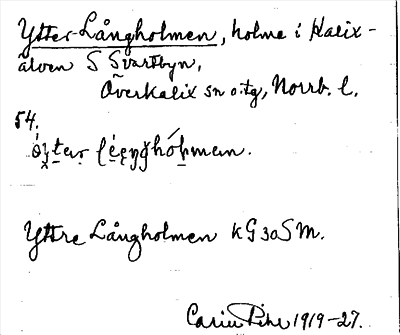 Ytter-Långholmen, holme i Kalix-
älven S Svartbyn,
Överkalix sn o. tg, Norrb. l.
54.
Yttre Långholmen KG30SM.
Carin Pihl 1919-27.